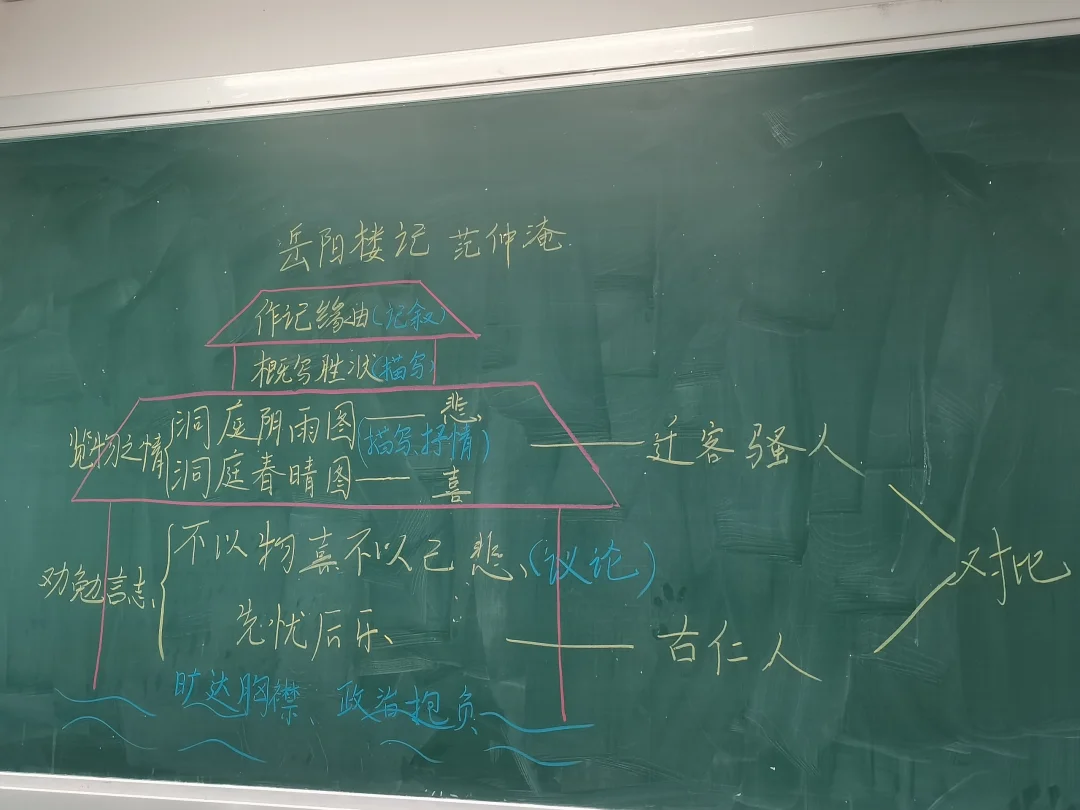 岳阳楼记 范仲淹
作记缘由(记叙)
概写胜状(描写)
览物之情 洞庭阴雨图——悲
(描写、抒情) —— 迁客骚人
洞庭春晴图——喜
不以物喜不以己悲、(议论)
劝勉言志、
对比
先忧后乐 —— 古仁人
旷达胸襟、政治抱负